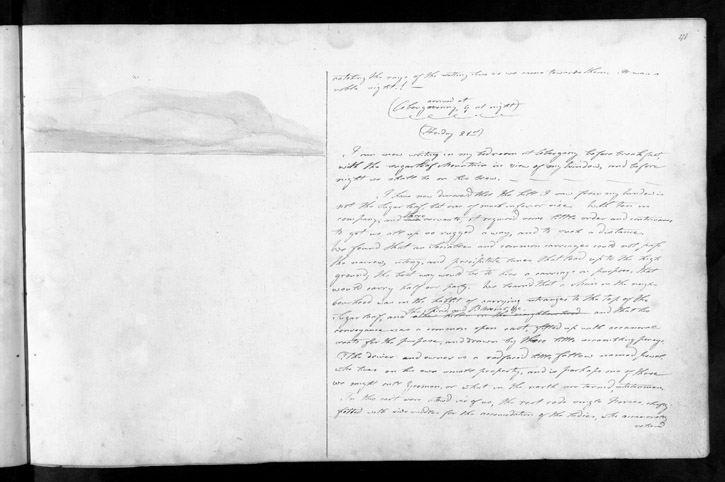 catching the rays of the setting sun as we came towards them. It was a
noble sight! —
(arrived at
Abergavenny, 9 at night)
(Thursday 21st)
I am now writing in my bedroom at Abergavenny before breakfast
with the sugar loaf Mountain in view of my window, and before
night we shall be on the brow.
I have now discovered that the hill I saw from my window is
not the Sugar loaf, but one of much inferior size. With ten in
company, and three servants, it required some little order and contrivance
to get us all up so rugged a way, and to such a distance.
We found that as chariots and common carriages could not pass
the narrow, steep, and precipitate lanes that lead up to the high
ground, the best way would be to hire a carriage on purpose, that
would carry half our party. We learned that a man in the neigh-
bourhood was in the habit of carrying strangers to the top of the
Sugar loaf, and and that his
conveyance was a common open cart, fitted up with occasional
seats for the purpose, and drawn by three little
The driver and owner is a red faced little fellow named, Powel
who lives on his own small property, and is perhaps one of those
we might call Yeomen, or what in the north are termed, statesmen.
In the cart were six of us, the rest rode single horses, chiefly
fitted with side saddles for the accommodation of the ladies, who